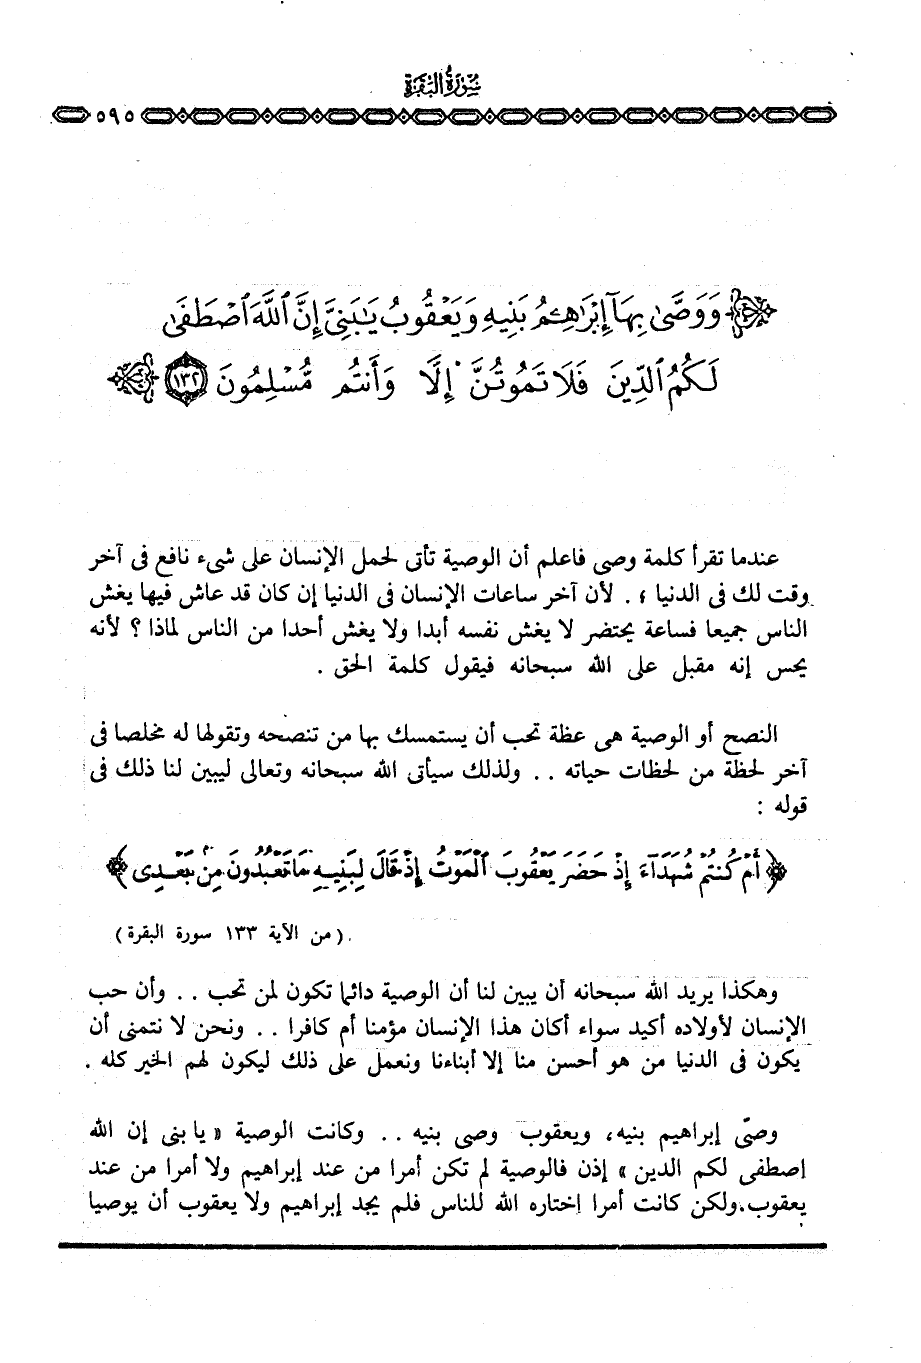 سورة البقرة
٥٩٥
وَوَصَّىٰ بِهَآ إِبْرَٰهِـۧمُ بَنِيهِ وَيَعْقُوبُ يَٰبَنِىَّ إِنَّ ٱللَّهَ ٱصْطَفَىٰ
لَكُمُ ٱلدِّينَ فَلَا تَمُوتُنَّ إِلَّا وَأَنتُم مُّسْلِمُونَ ١٣٢
عندما تقرأ كلمة وصى فاعلم أن الوصية تأتى لحمل الإنسان على شىء نافع فى آخر
وقت لك فى الدنيا ، . لأن آخر ساعات الإنسان فى الدنيا إن كان قد عاش فيها يغش
الناس جميعا فساعة يحتضر لا يغش نفسه أبدا ولا يغش أحدا من الناس لماذا ؟ لأنه
يحس إنه مقبل على الله سبحانه فيقول كلمة الحق .
النصح أو الوصية هى عظة تحب أن يستمسك بها من تنصحه وتقولها له مخلصا فى
آخر لحظة من لحظات حياته . . ولذلك سيأتى الله سبحانه وتعالى ليبين لنا ذلك فى
قوله :
﴿ أَمْ كُنتُمْ شُهَدَآءَ إِذْ حَضَرَ يَعْقُوبَ ٱلْمَوْتُ إِذْ قَالَ لِبَنِيهِ مَا تَعْبُدُونَ مِنۢ بَعْدِى ﴾
( من الآية ١٣٣ سورة البقرة )
وهكذا يريد الله سبحانه أن يبين لنا أن الوصية دائما تكون لمن تحب . . وأن حب
الإنسان لأولاده أكيد سواء أكان هذا الإنسان مؤمنا أم كافرا . . ونحن لا نتمنى أن
يكون فى الدنيا من هو أحسن منا إلا أبناءنا ونعمل على ذلك ليكون لهم الخير كله .
وصّى إبراهيم بنيه، ويعقوب وصى بنيه . . وكانت الوصية « يا بنى إن الله
اصطفى لكم الدين » إذن فالوصية لم تكن أمرا من عند إبراهيم ولا أمرا من عند
يعقوب.ولكن كانت أمرا اختاره الله للناس فلم يجد إبراهيم ولا يعقوب أن يوصيا